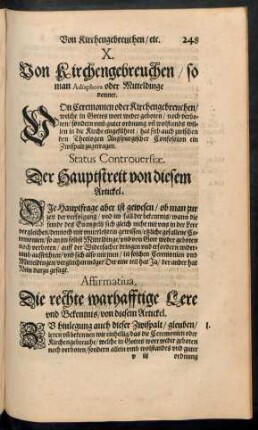 Von Kirchengebreuchen / etc. 248
X.
Von Kirchengebreuchen / so
man Adiaphora oder Mitteldinge
nennet.
VOn Ceremonien oder Kirchengebreuchen /
welche in Gottes wort weder geboten / noch verbo-
ten / sondern umb guter ordnung und wolstandes wil-
len in die Kirche eingeführet / hat sich auch zwischen
den Theologen Augspurgischer Confession ein
Zwispalt zugetragen.
Status Controuersiæ.
Der Hauptstreit von diesem
Artickel.
DIe Hauptfrage aber ist gewesen / ob man zur
zeit der verfolgung / und im fall der bekentnis / wann die
feinde des Euangelij sich gleich nicht mit uns in der Lere
vergleichen / dennoch mit unverletztem gewissen / etzliche gefallene Ce-
remonien / so an im selbst Mitteldinge / und von Gott weder geboten
noch verboten / auff der Widersacher dringen und erfordern wider-
umb auffrichten / und sich also mit jnen / in solchen Ceremonien und
Mitteldingen / vergleichen möge? Der eine teil hat Ja / der ander hat
Nein darzu gesagt.
Affirmatiua,
Die rechte warhafftige Lere
und Bekentnis / von diesem Artickel.
ZU hinlegung auch dieser Zwispalt / gleuben / 1.
leren und bekennen wir einhellig / das die Ceremonien oder
Kirchengebreuche / welche in Gottes wort weder geboten
noch verboten / sondern allein umb wolstandes und guter
ordnung